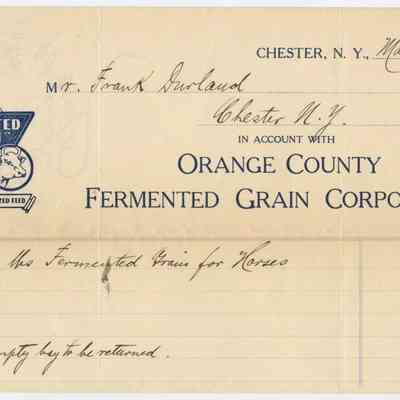 CHESTER, N. Y., Ma
Mr. Frank Durland
Chester N.Y.
IN ACCOUNT WITH
ORANGE COUNTY
FERMENTED GRAIN CORPO
TED
ED FEED
lbs Fermented Grain for Horses
mpty bag to be returned.